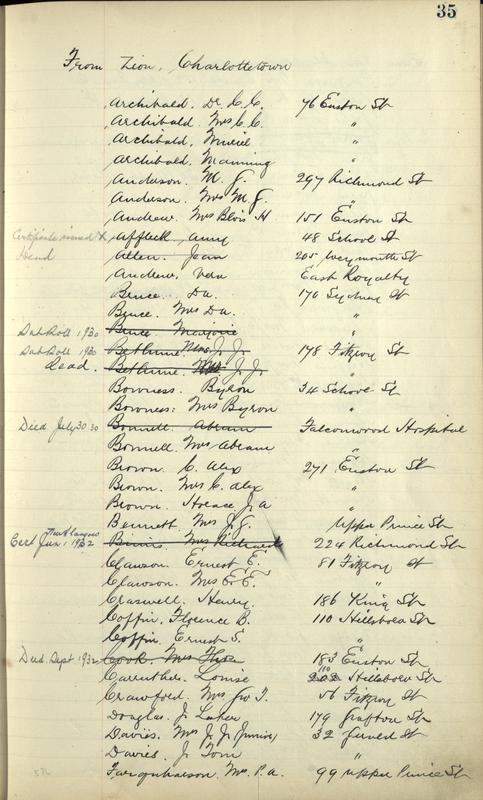 35
From Zion, Charlottetown
Archibald. Dr. C. C. 76 Euston St
Archibald. Mrs C. C. "
Archibald, Muriel "
Archibald. Manning "
Anderson. M. J. 297 Richmond St
Anderson. Mrs M. J. "
Andrew. Mrs Blois H 151 Euston St
Certificate issued X Affleck, Amy 48 School St
Dead Allen. Jean 205 Weymouth St
Andrew, Vera East Royalty
Bruce. Da. 170 Sydney St
Bruce. Mrs Da. "
Dis Roll 1930 Bruce. Marjorie "
Dis Roll 1930 Bethune. Mrs J. J. 178 Fitzroy St
Dead. Bethune. J. J. "
Bowness. Byron 34 School St
Bowness: Mrs Byron "
Died July 30 30 Bonnell. Abram Falconwood Hospital
Bonnell. Mrs Abram "
Brown. C. Alex 271 Euston St
Brown. Mrs C. Alex "
Brown. Horace J. A "
Bennett, Mrs J. G. Upper Prince St
Cert Jan. 1932 Binns. Mrs Richard 224 Richmond St
Clawson. Ernest E. 81 Fitzroy St
Clawson. Mrs E. E. "
Craswell. Henry. 186 King St
Coffin. Florence B. 110 Hillsboro St
Coffin. Ernest S. "
Died Sept. 1932 Cook. Mrs 183 Euston St
Carruthers. Louise 110 Hillsboro St
Crawford. Mrs Jno T. 56 Fitzroy St
Douglas. J. 179 Grafton St
Davies. Mrs J. J. (Junior) 32 St
Davies. J. Tom "
Farquharson. Mrs. P. A. 99 Upper Prince St